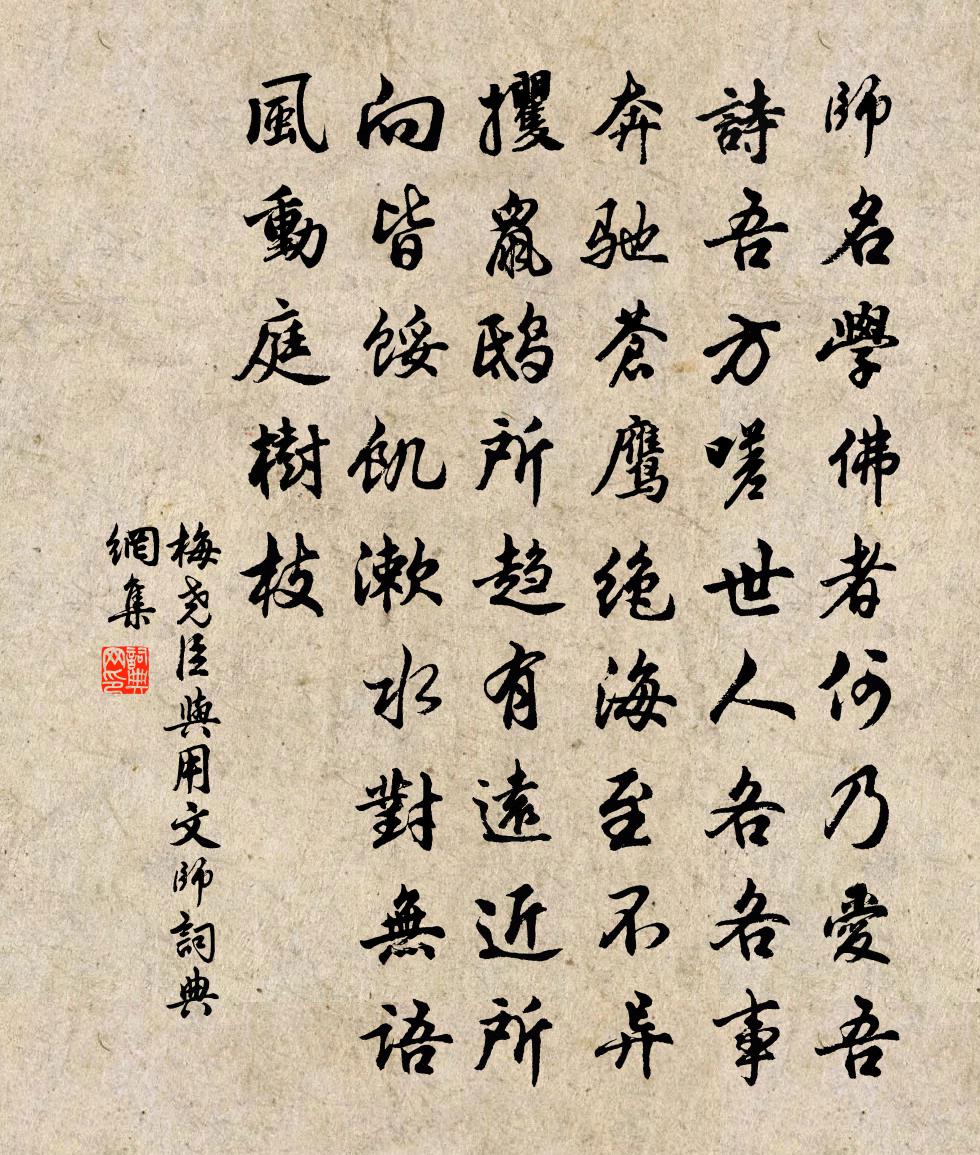 師名學佛者何乃愛吾
詩吾方嗟世人各各事
奔馳蒼鹰絶海至不异
攫鼠鴟所趋有遠近所
向皆餒飢漱水對無語
風動庭樹枝
梅尧臣與用文師詞典
網集
詞典網印